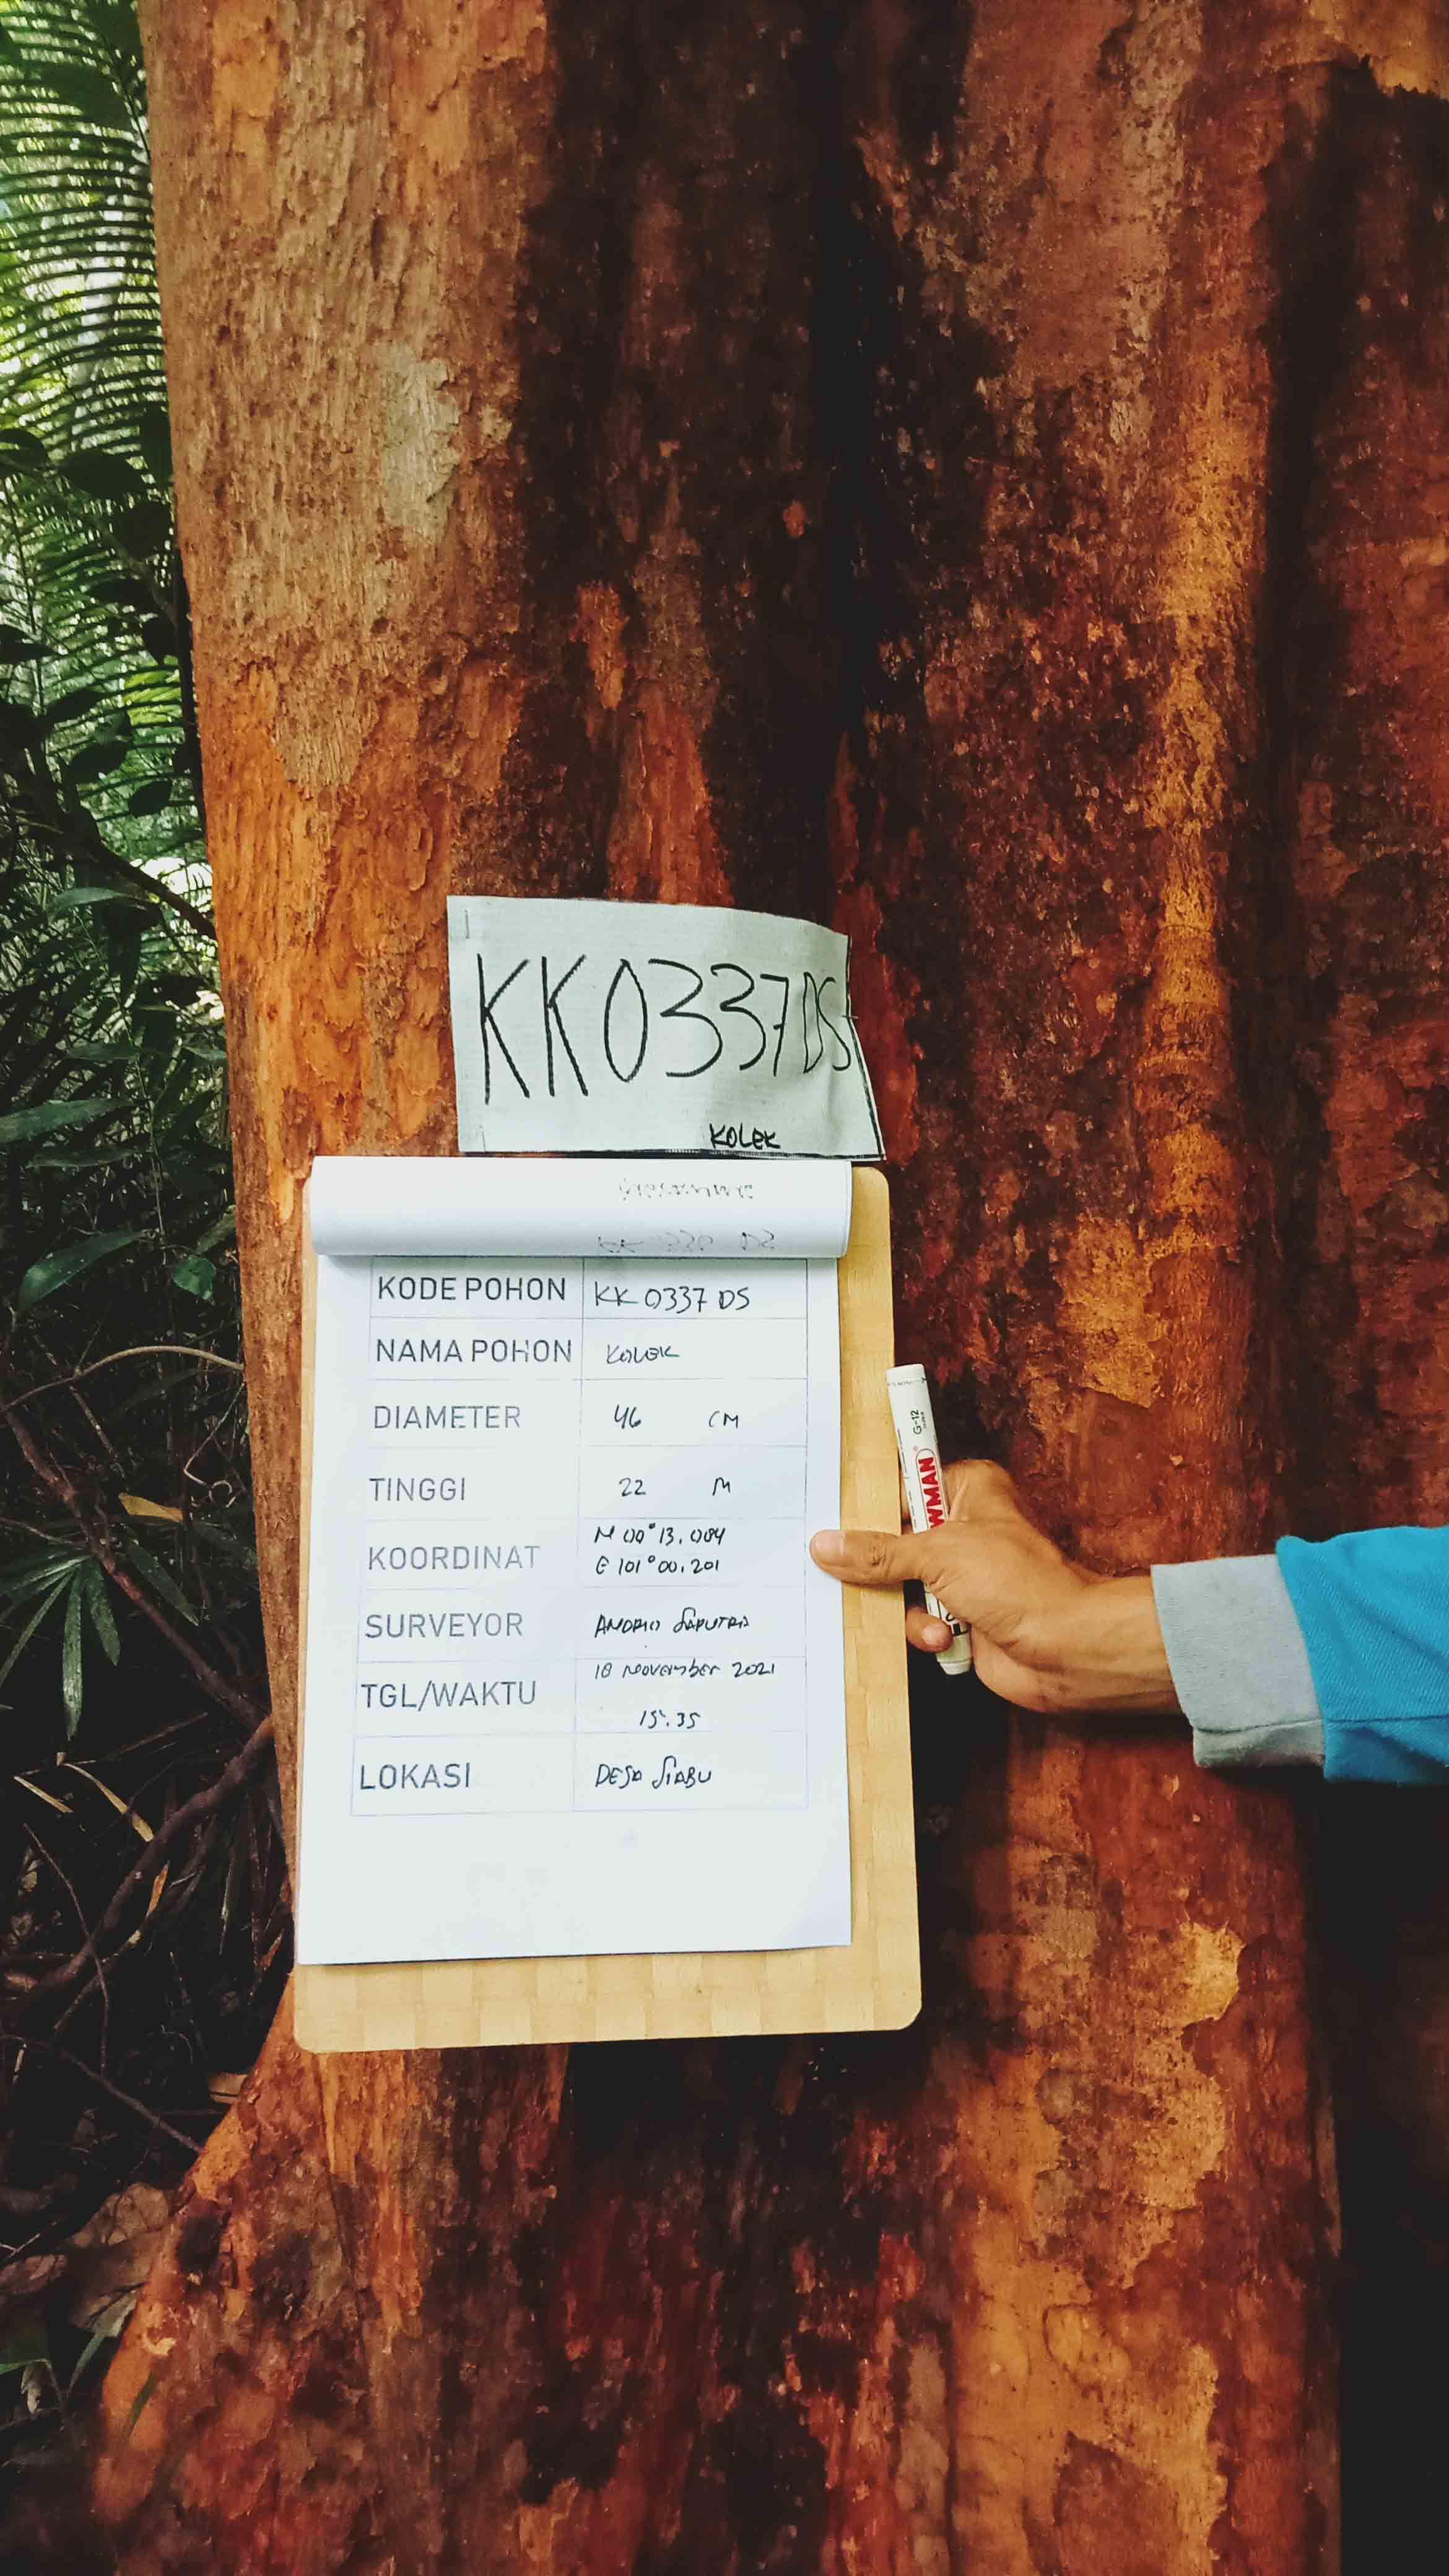 KK0337DS
KOLEK
KODE POHON KK 0337 DS
NAMA POHON KOLEK
DIAMETER 46 CM
TINGGI 22 M
KOORDINAT N 00°13.004
E 101°00.201
SURVEYOR ANDRIO SAPUTRA
TGL/WAKTU 18 November 2021
15.35
LOKASI DESA SIABU
G-12
WMAN